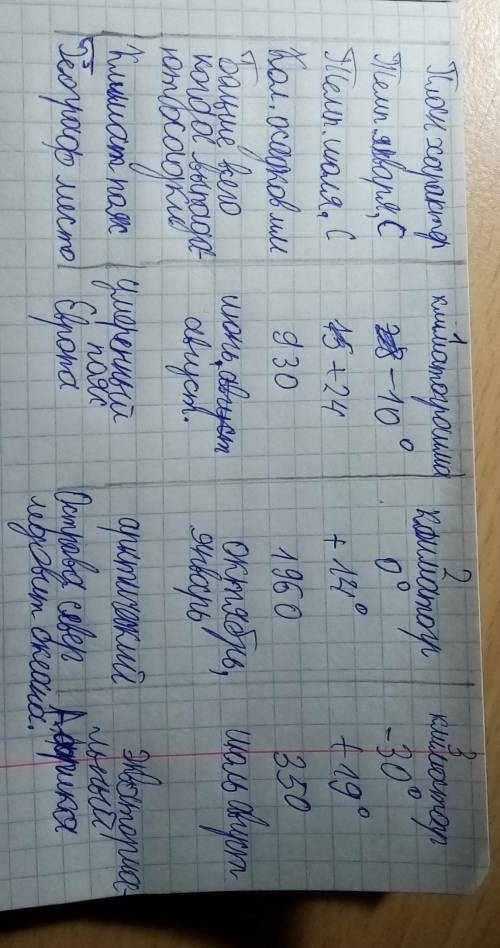 План характер
1 климатограмма
2 климатогр
3 климатогр
Темп. января, С
-10°
0°
-30°
Темп. июля, С
+24
+14°
+19°
Кол. осадков мм
930
1960
350
больше всего
когда выпада-
ют осадки
июнь, август
август.
октябрь,
январь
июль август
Климат пояс
умеренный
пояс
арктический
экваториа-
льный
Географ место
Европа
Острова север
ледовит океана.
Африка